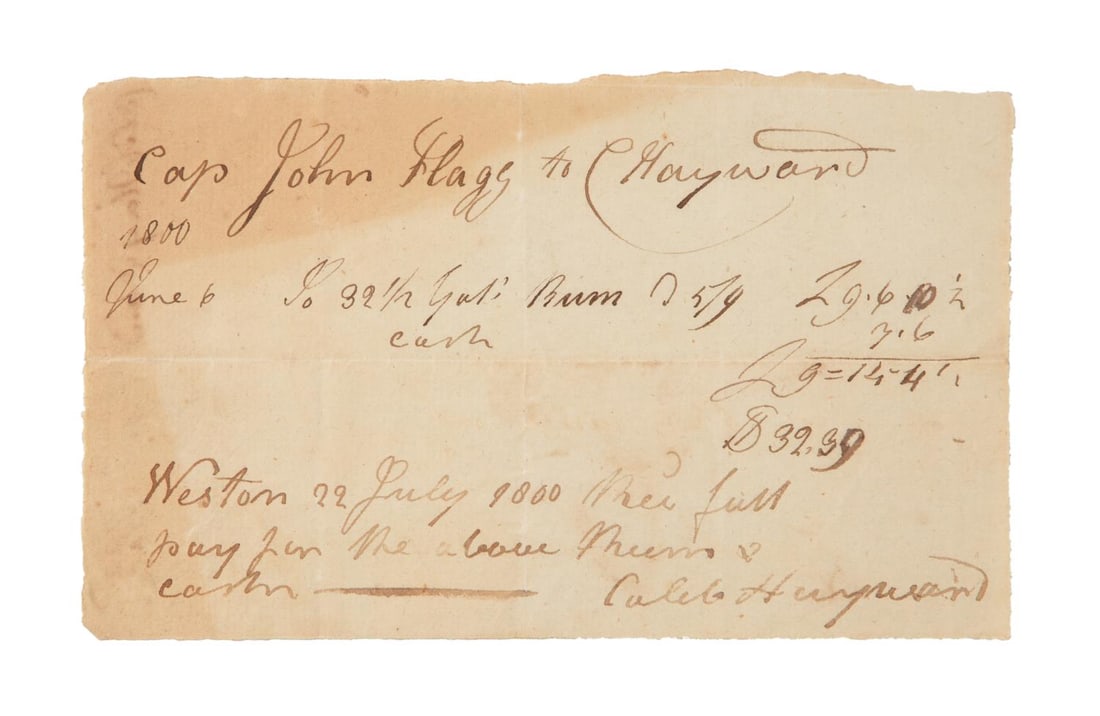 Cap John Flagg to C Hayward
1800
June 6 To 32 1/2 Gals Rum @ 5/9 £9.6.10 ½
cash 7.6
£9=14-4 ½
$ 32.39
Weston 22 July 1800 Recd full
pay for the above Rum &
cash Caleb Hayward